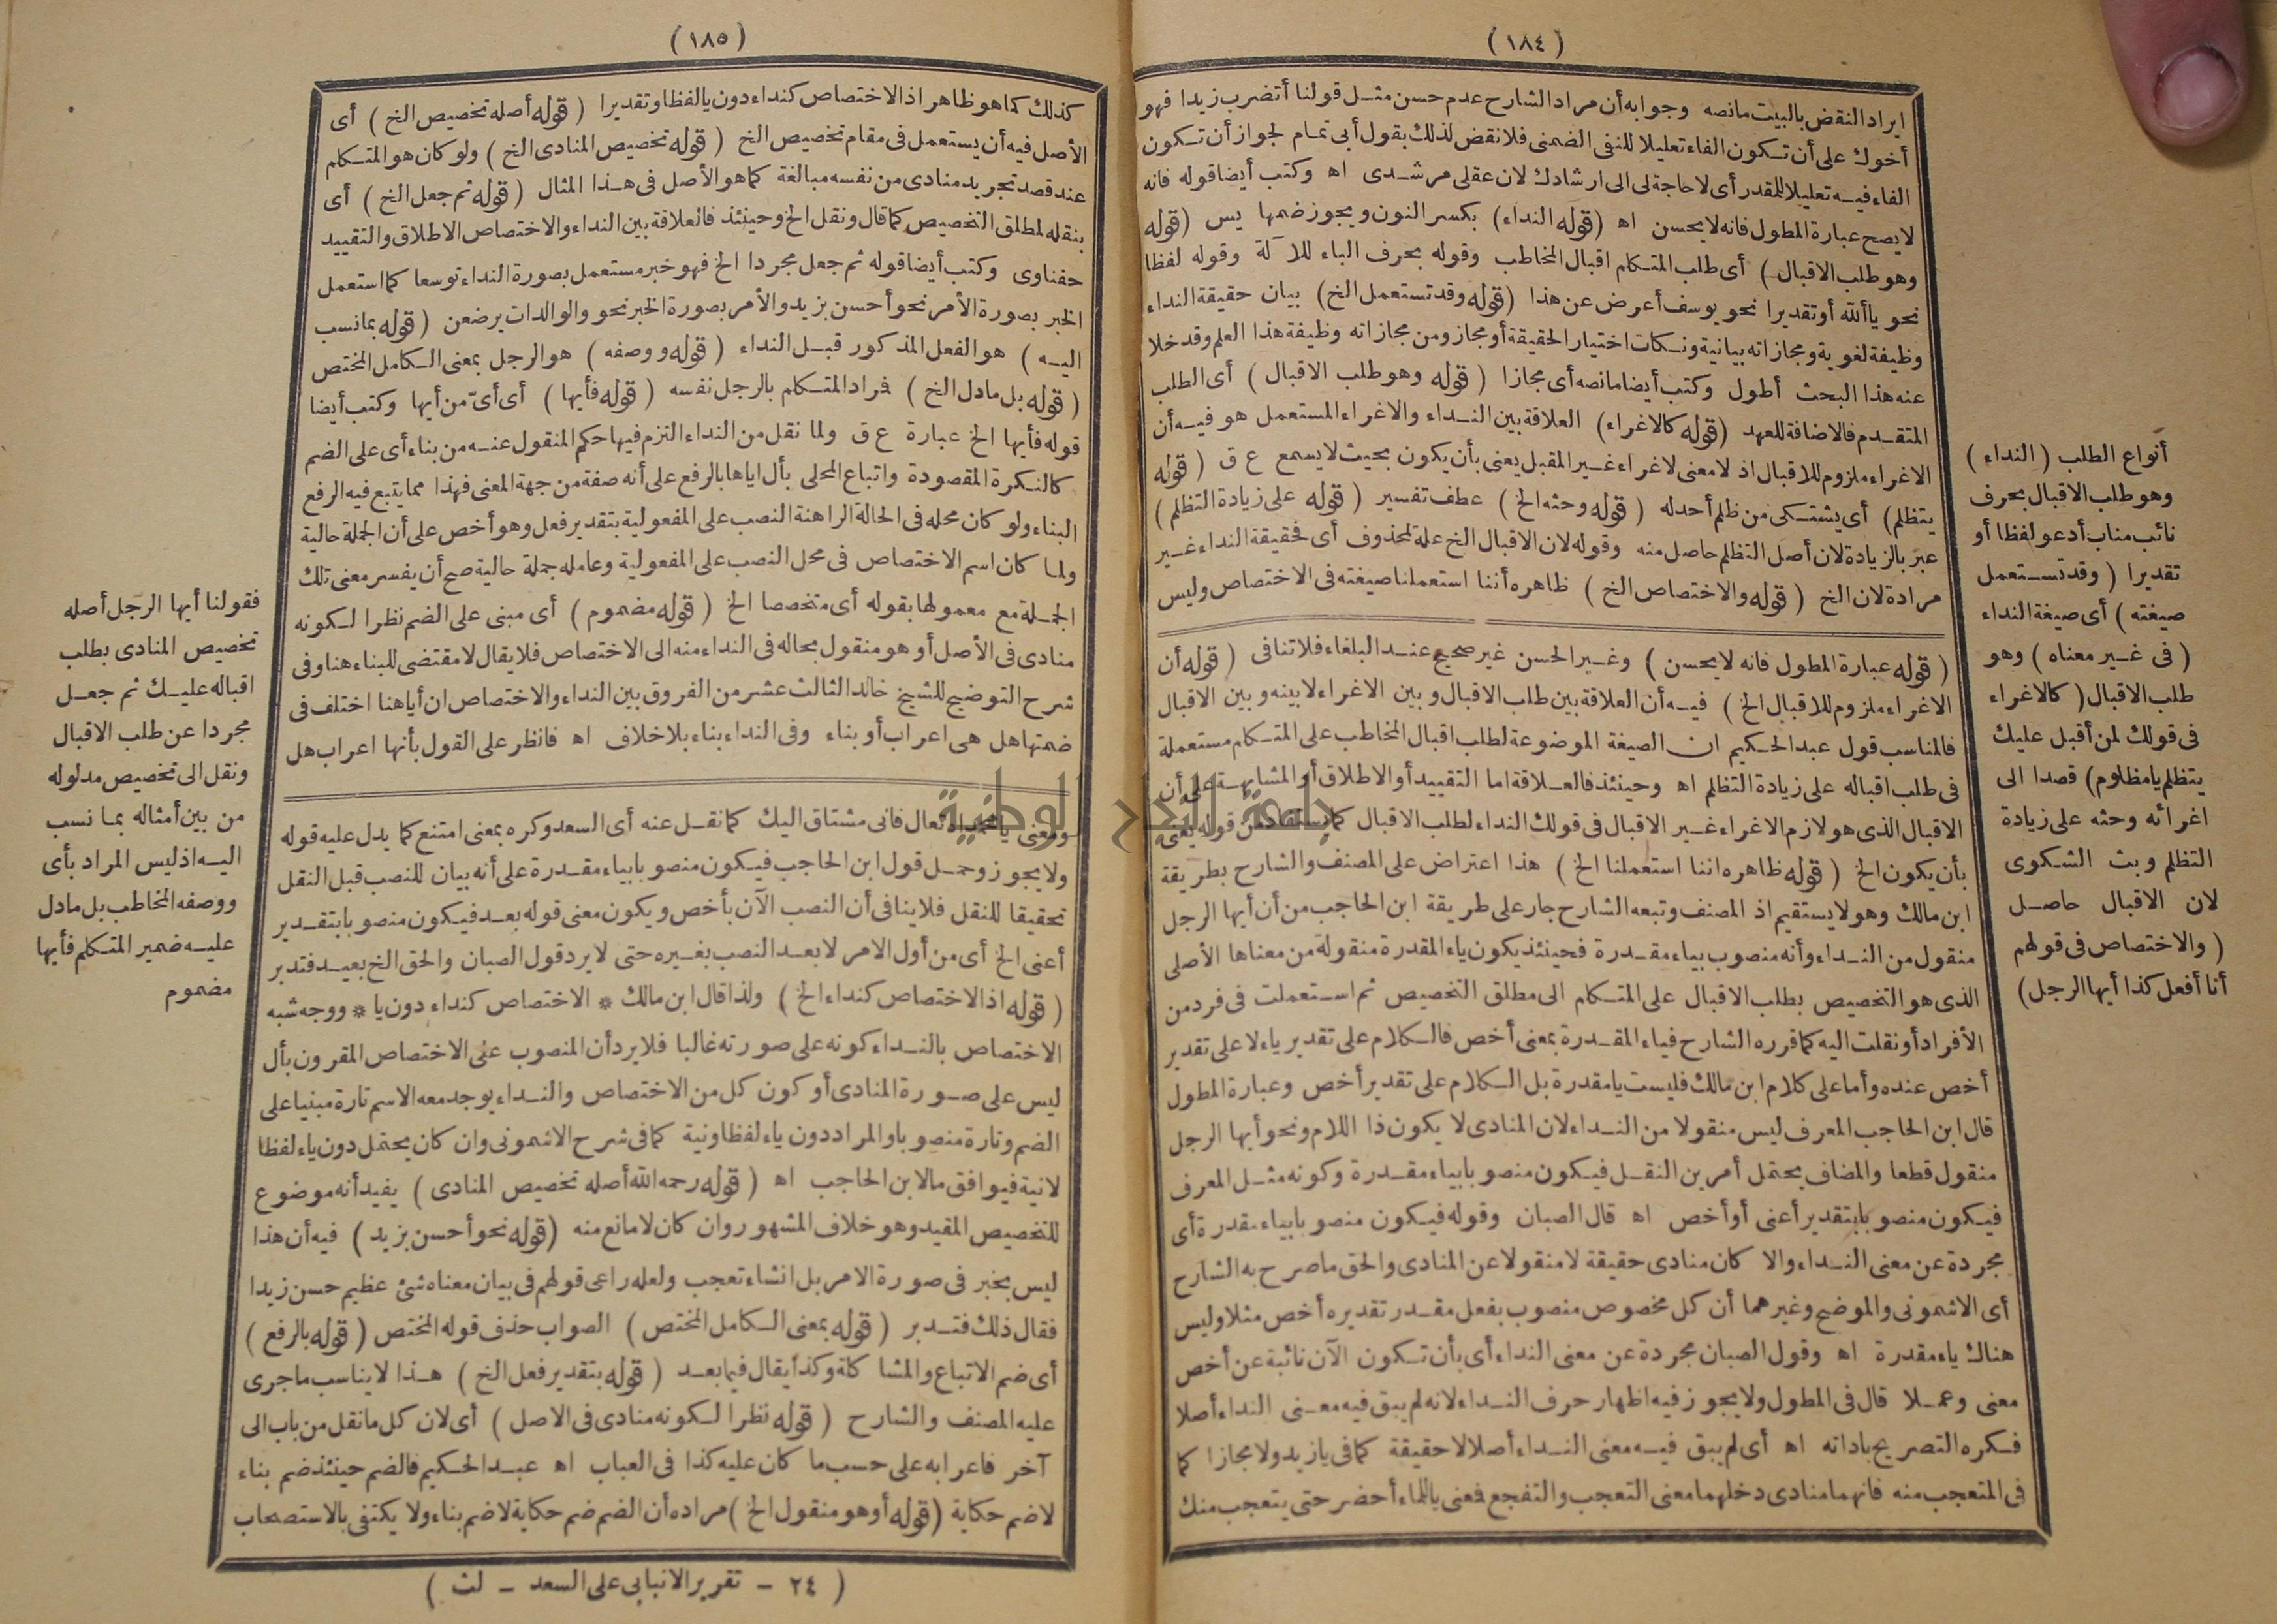 ( ١٨٤ )
ايراد النقض بالبيت مانصه وجوابه أن مراد الشارح عدم حسن مثل قولنا أتضرب زيدا فهو
أخوك على أن تكون الفاء تعليلا للنفى الضمنى فلا نقض لذلك بقول أبى تمام لجواز أن تكون
الفاء فيه تعليلا للمقدر أى لا حاجة لى الى ارشادك لان عقلى مرشدى اه وكتب أيضا قوله فانه
لا يصح عبارة المطول فانه لا يحسن اه (قوله النداء) بكسر النون ويجوز ضمها يس (قوله
وهو طلب الاقبال) أى طلب المتكلم اقبال المخاطب وقوله بحرف الباء للآلة وقوله لفظا
نحو يا ألله أو تقديرا نحو يوسف أعرض عن هذا (قوله وقد تستعمل الخ) بيان حقيقة النداء
وظيفة لغوية ومجازاته بيانية ونكات اختيار الحقيقة أو مجاز ومن مجازاته وظيفة هذا العلم وقد خلا
عنه هذا البحث أطول وكتب أيضا مانصه أى مجازا (قوله وهو طلب الاقبال) أى الطلب
المتقدم فالاضافة للعهد (قوله كالاغراء) العلاقة بين النداء والاغراء المستعمل هو فيه أن
الاغراء ملزوم للاقبال اذ لا معنى لاغراء غير المقبل يعنى بأن يكون بحيث لا يسمع ع ق (قوله
يتظلم) أى يشتكى من ظلم أحد له (قوله وحثه الخ) عطف تفسير (قوله على زيادة التظلم)
عبر بالزيادة لان أصل التظلم حاصل منه وقوله لان الاقبال الخ علة لمحذوف أى فحقيقة النداء غير
مرادة لان الخ (قوله والاختصاص الخ) ظاهره أننا استعملنا صيغته فى الاختصاص وليس
(قوله عبارة المطول فانه لا يحسن) وغير الحسن غير صحيح عند البلغاء فلا تنافى (قوله أن
الاغراء ملزوم للاقبال الخ) فيه أن العلاقة بين طلب الاقبال وبين الاغراء لا بينه وبين الاقبال
فالمناسب قول عبد الحكيم ان الصيغة الموضوعة لطلب اقبال المخاطب على المتكلم مستعملة
فى طلب اقباله على زيادة التظلم اه وحينئذ فالعلاقة اما التقييد أو الاطلاق أو المشابهة على أن
الاقبال الذى هو لازم الاغراء غير الاقبال فى قولك النداء لطلب الاقبال كما يستفاد من قوله يعنى
بأن يكون الخ (قوله ظاهره اننا استعملنا الخ) هذا اعتراض على المصنف والشارح بطريقة
ابن مالك وهو لا يستقيم اذ المصنف وتبعه الشارح جار على طريقة ابن الحاجب من أن أيها الرجل
منقول من النداء وأنه منصوب بياء مقدرة فحينئذ يكون ياء المقدرة منقولة من معناها الأصلى
الذى هو التخصيص بطلب الاقبال على المتكلم الى مطلق التخصيص ثم استعملت فى فرد من
الأفراد أو نقلت اليه كما قرره الشارح فياء المقدرة بمعنى أخص فالكلام على تقدير ياء لا على تقدير
أخص عنده وأما على كلام ابن مالك فليست يا مقدرة بل الكلام على تقدير أخص وعبارة المطول
قال ابن الحاجب المعرف ليس منقولا من النداء لان المنادى لا يكون ذا اللام ونحو أيها الرجل
منقول قطعا والمضاف يحتمل أمرين النقل فيكون منصوبا بياء مقدرة وكونه مثل المعرف
فيكون منصوبا بتقدير أعنى أو أخص اه قال الصبان وقوله فيكون منصوبا بياء مقدرة أى
مجردة عن معنى النداء والا كان منادى حقيقة لا منقولا عن المنادى والحق ما صرح به الشارح
أى الاشمونى والموضح وغيرهما أن كل مخصوص منصوب بفعل مقدر تقديره أخص مثلا وليس
هناك ياء مقدرة اه وقول الصبان مجردة عن معنى النداء أى بأن تكون الآن نائبة عن أخص
معنى وعملا قال فى المطول ولا يجوز فيه اظهار حرف النداء لانه لم يبق فيه معنى النداء أصلا
فكره التصريح باداته اه أى لم يبق فيه معنى النداء أصلا لا حقيقة كما فى يا زيد ولا مجازا كما
فى المتعجب منه فانهما منادى دخلهما معنى التعجب والتفجع فمعنى يا للماء أحضر حتى يتعجب منك
أنواع الطلب (النداء)
وهو طلب الاقبال بحرف
نائب مناب أدعو لفظا أو
تقديرا (وقد تستعمل
صيغته) أى صيغة النداء
(فى غير معناه) وهو
طلب الاقبال (كالاغراء
فى قولك لمن أقبل عليك
يتظلم يا مظلوم) قصدا الى
اغرائه وحثه على زيادة
التظلم وبث الشكوى
لان الاقبال حاصل
(والاختصاص فى قولهم
أنا أفعل كذا أيها الرجل)
( ١٨٥ )
كذلك كما هو ظاهر اذ الاختصاص كنداء دون يا لفظا وتقديرا (قوله أصله تخصيص الخ) أى
الأصل فيه أن يستعمل فى مقام تخصيص الخ (قوله تخصيص المنادى الخ) ولو كان هو المتكلم
عند قصد تجريد منادى من نفسه مبالغة كما هو الأصل فى هذا المثال (قوله ثم جعل الخ) أى
بنقله لمطلق التخصيص كما قال ونقل الخ وحينئذ فالعلاقة بين النداء والاختصاص الاطلاق والتقييد
حفناوى وكتب أيضا قوله ثم جعل مجردا الخ فهو خبر مستعمل بصورة النداء توسعا كما استعمل
الخبر بصورة الأمر نحو أحسن بزيد والأمر بصورة الخبر نحو والوالدات يرضعن (قوله بما نسب
اليه) هو الفعل المذكور قبل النداء (قوله ووصفه) هو الرجل بمعنى الكامل المختص
(قوله بل مادل الخ) فراد المتكلم بالرجل نفسه (قوله فأيها) أى أىّ من أيها وكتب أيضا
قوله فأيها الخ عبارة ع ق ولما نقل من النداء التزم فيها حكم المنقول عنه من بناء أى على الضم
كالنكرة المقصودة واتباع المحلى بأل اياها بالرفع على أنه صفة من جهة المعنى فهذا مما يتبع فيه الرفع
البناء ولو كان محله فى الحالة الراهنة النصب على المفعولية بتقدير فعل وهو أخص على أن الجملة حالية
ولما كان اسم الاختصاص فى محل النصب على المفعولية وعامله جملة حالية صح أن يفسر معنى تلك
الجملة مع معمولها بقوله أى متخصصا الخ (قوله مضموم) أى مبنى على الضم نظرا لكونه
منادى فى الأصل أو هو منقول بحاله فى النداء منه الى الاختصاص فلا يقال لا مقتضى للبناء هنا وفى
شرح التوضيح للشيخ خالد الثالث عشر من الفروق بين النداء والاختصاص ان أيا هنا اختلف فى
ضمتها هل هى اعراب أو بناء وفى النداء بناء بلا خلاف اه فانظر على القول بأنها اعراب هل
ومعنى يا محمد لا تعال فانى مشتاق اليك كما نقل عنه أى السعد وكره بمعنى امتنع كما يدل عليه قوله
ولا يجوز وحمل قول ابن الحاجب فيكون منصوبا بياء مقدرة على أنه بيان للنصب قبل النقل
تحقيقا للنقل فلا ينافى أن النصب الآن بأخص ويكون معنى قوله بعد فيكون منصوبا بتقدير
أعنى الخ أى من أول الامر لا بعد النصب بغيره حتى لا يرد قول الصبان والحق الخ بعيد فتدبر
(قوله اذ الاختصاص كنداء الخ) ولذا قال ابن مالك * الاختصاص كنداء دون يا * ووجه شبه
الاختصاص بالنداء كونه على صورته غالبا فلا يرد أن المنصوب على الاختصاص المقرون بأل
ليس على صورة المنادى أو كون كل من الاختصاص والنداء يوجد معه الاسم تارة مبنيا على
الضم وتارة منصوبا والمراد دون ياء لفظا ونية كما فى شرح الاشمونى وان كان يحتمل دون ياء لفظا
لانية فيوافق مالابن الحاجب اه (قوله رحمه الله أصله تخصيص المنادى) يفيد أنه موضوع
للتخصيص المقيد وهو خلاف المشهور وان كان لا مانع منه (قوله نحو أحسن بزيد) فيه أن هذا
ليس بخبر فى صورة الامر بل انشاء تعجب ولعله راعى قولهم فى بيان معناه شئ عظيم حسن زيدا
فقال ذلك فتدبر (قوله بمعنى الكامل المختص) الصواب حذف قوله المختص (قوله بالرفع)
أى ضم الاتباع والمشاكلة وكذا يقال فيما بعد (قوله بتقدير فعل الخ) هذا لا يناسب ما جرى
عليه المصنف والشارح (قوله نظرا لكونه منادى فى الاصل) أى لان كل ما نقل من باب الى
آخر فاعرابه على حسب ما كان عليه كذا فى العباب اه عبد الحكيم فالضم حينئذ ضم بناء
لا ضم حكاية (قوله أو هو منقول الخ) مراده أن الضم ضم حكاية لا ضم بناء ولا يكتفى بالاستصحاب
فقولنا أيها الرجل أصله
تخصيص المنادى بطلب
اقباله عليك ثم جعل
مجردا عن طلب الاقبال
ونقل الى تخصيص مدلوله
من بين أمثاله بما نسب
اليه اذ ليس المراد بأى
ووصفه المخاطب بل مادل
عليه ضمير المتكلم فأيها
مضموم
( ٢٤ - تقرير الانبابى على السعد - لث )
جامعة النجاح الوطنية